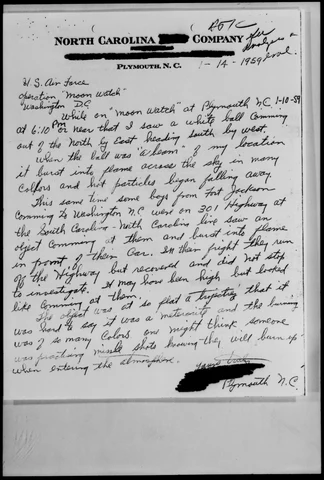 NORTH CAROLINA COMPANY
PLYMOUTH, N. C.
1-14-1959
U.S. Air Force
Operation "Moon Watch"
Washington D.C.
While on "Moon Watch" at Plymouth N.C. 1-10-59
at 6:10 Pm or near that I saw a white ball Comming
out of the North by East heading south by west.
When the ball was "a beam" of my location
it burst into flame across the sky in many
Colors and hot particles began falling away.
This same time some boys from Fort Jackson
Comming to Washington N.C. were on 301 Highway at
the South Carolina - North Carolina line saw an
object Comming at them and burst into flame
in front of them Car. In their fright they run
off the Highway but recovered and did not stop
to investigate. It may have been high but looked
like Comming at them.
The object was at so flat a trijectory that it
was hard to say it was a meteorite and the burning
was of so many Colors one might think someone
was practicing missle shots knowing they will burn up
when entering the atmosphere.
Plymouth N.C.